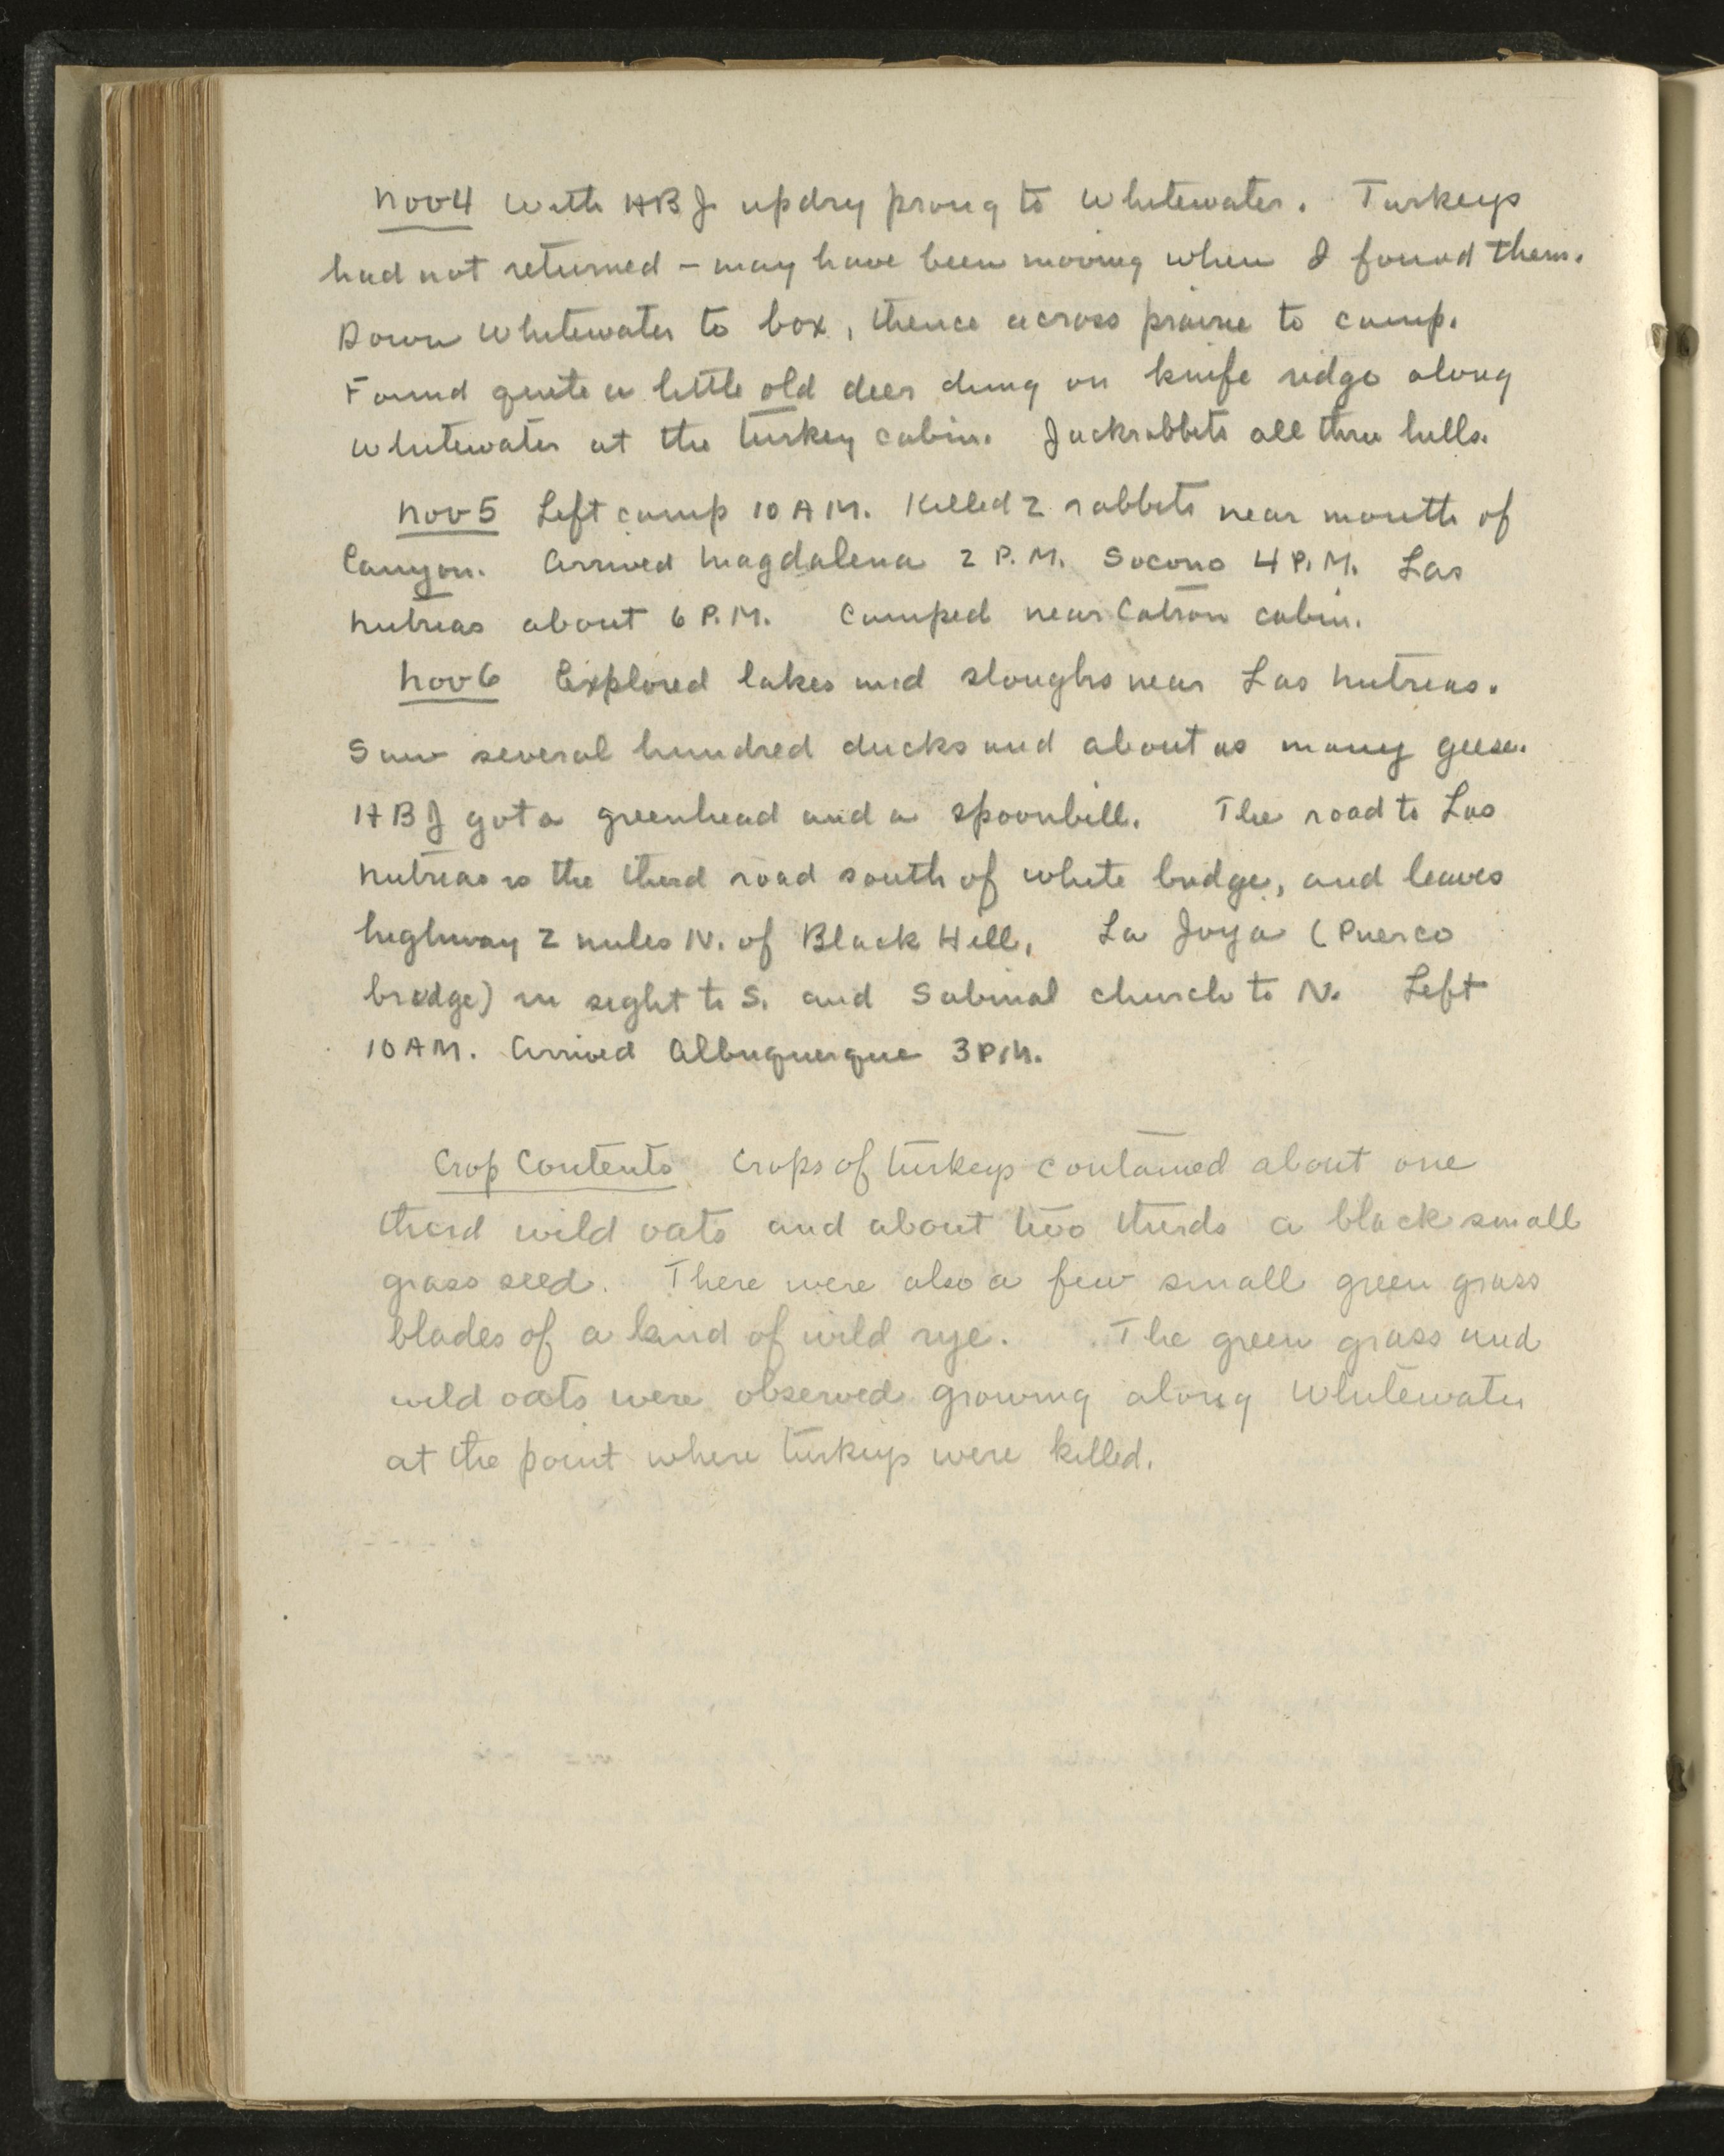 Nov 4 With HBJ up dry prong to Whitewater. Turkeys
had not returned - may have been moving when I found them.
Down Whitewater to box, thence across prairie to camp.
Found quite a little old deer dung on knife ridge along
Whitewater at the turkey cabin. Jackrabbits all thru hills.
Nov 5 Left camp 10 AM. Killed 2 rabbits near mouth of
Canyon. Arrived Magdalena 2 P.M. Socorro 4 P.M. Las
Nutrias about 6 P.M. Camped near Catron cabin.
Nov 6 Explored lakes and sloughs near Las Nutrias.
Saw several hundred ducks and about as many geese.
HBJ got a greenhead and a spoonbill. The road to Las
Nutrias is the third road south of white bridge, and leaves
highway 2 miles N. of Black Hill. La Joya (Puerco
bridge) in sight to S. and Sabinal church to N. Left
10 AM. Arrived Albuquerque 3 PM.
Crop Contents Crops of turkeys contained about one
third wild oats and about two thirds a black small
grass seed. There were also a few small green grass
blades of a kind of wild rye. The green grass and
wild oats were observed growing along Whitewater
at the point where turkeys were killed.